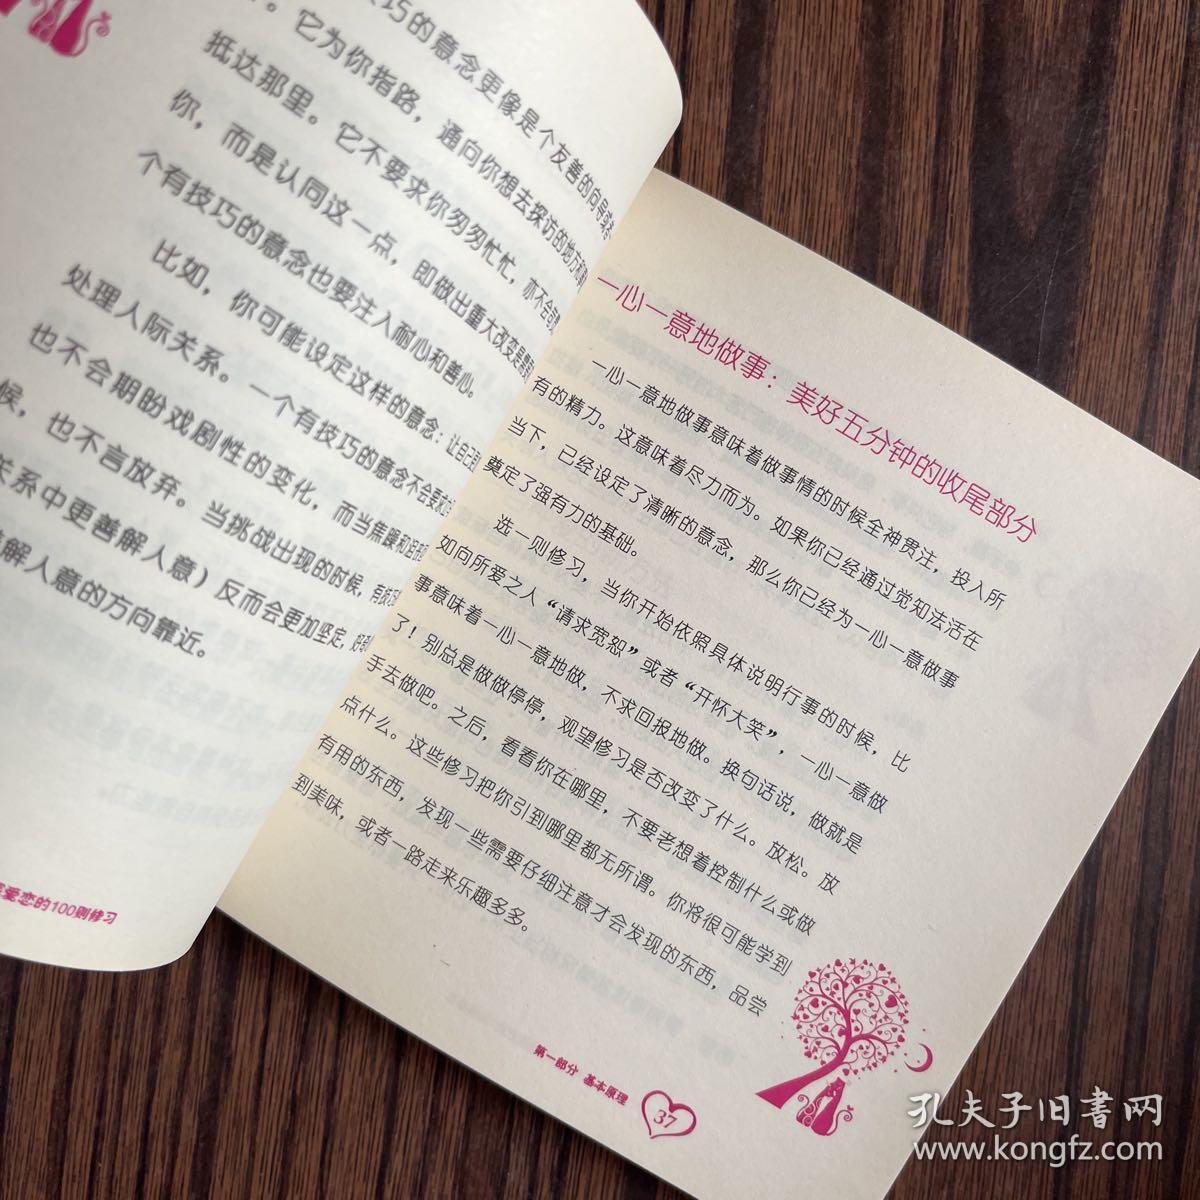 技巧的意念更像是个友善的向导
。它为你指路，通向你想去探访的地方
抵达那里。它不要求你匆匆忙忙，亦不会
你，而是认同这一点，即做出重大改变是需要
个有技巧的意念也要注入耐心和善心。
比如，你可能设定这样的意念：让自己
处理人际关系。一个有技巧的意念不会要求
也不会期盼戏剧性的变化，而当焦躁和
候，也不言放弃。当挑战出现的时候，有技巧
关系中更善解人意）反而会更加坚定，
善解人意的方向靠近。
爱恋的100则修习
一心一意地做事：美好五分钟的收尾部分
一心一意地做事意味着做事情的时候全神贯注，投入所
有的精力。这意味着尽力而为。如果你已经通过觉知法活在
当下，已经设定了清晰的意念，那么你已经为一心一意做事
奠定了强有力的基础。
选一则修习，当你开始依照具体说明行事的时候，比
如向所爱之人“请求宽恕”或者“开怀大笑”，一心一意做
事意味着一心一意地做，不求回报地做。换句话说，做就是
了！别总是做做停停，观望修习是否改变了什么。放松。放
手去做吧。之后，看看你在哪里，不要老想着控制什么或做
点什么。这些修习把你引到哪里都无所谓。你将很可能学到
有用的东西，发现一些需要仔细注意才会发现的东西，品尝
到美味，或者一路走来乐趣多多。
第一部分 基本原理
37
孔夫子旧書网
www.kongfz.com